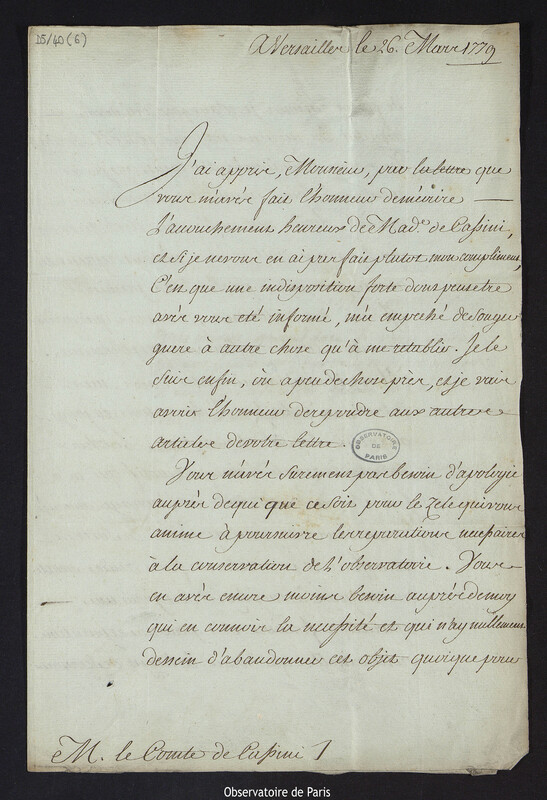 D5/40 (6)
A Versailles le 26. Mars 1779
J'ai appris, Monsieur, par la lettre que
vous m'avés fait l'honneur de m'écrire
l'accouchement heureux de Mad.e de Cassini,
et si je ne vous en ai pas fait plutot mon compliment,
C'est que une indisposition forte dont peut etre
avés vous eté informé, m'a empeché de songer
guere à autre chose qu'à me retablir. Je le
suis enfin, ou a peu de chose près, et je vais
avoir l'honneur de repondre aux autres
articles de votre lettre.
OBSERVATOIRE
DE
PARIS
Vous n'avés surement pas besoin d'apologie
auprès de qui que ce soit pour le zele qui vous
anime à poursuivre les reparations necessaires
à la conservation de l'observatoire. Vous
en avés encore moins besoin auprès de moy
qui en connois la necessité et qui n'ay nullement
dessein d'abandonner cet objet quoique pour
M. le Comte de Cassini
Observatoire de Paris